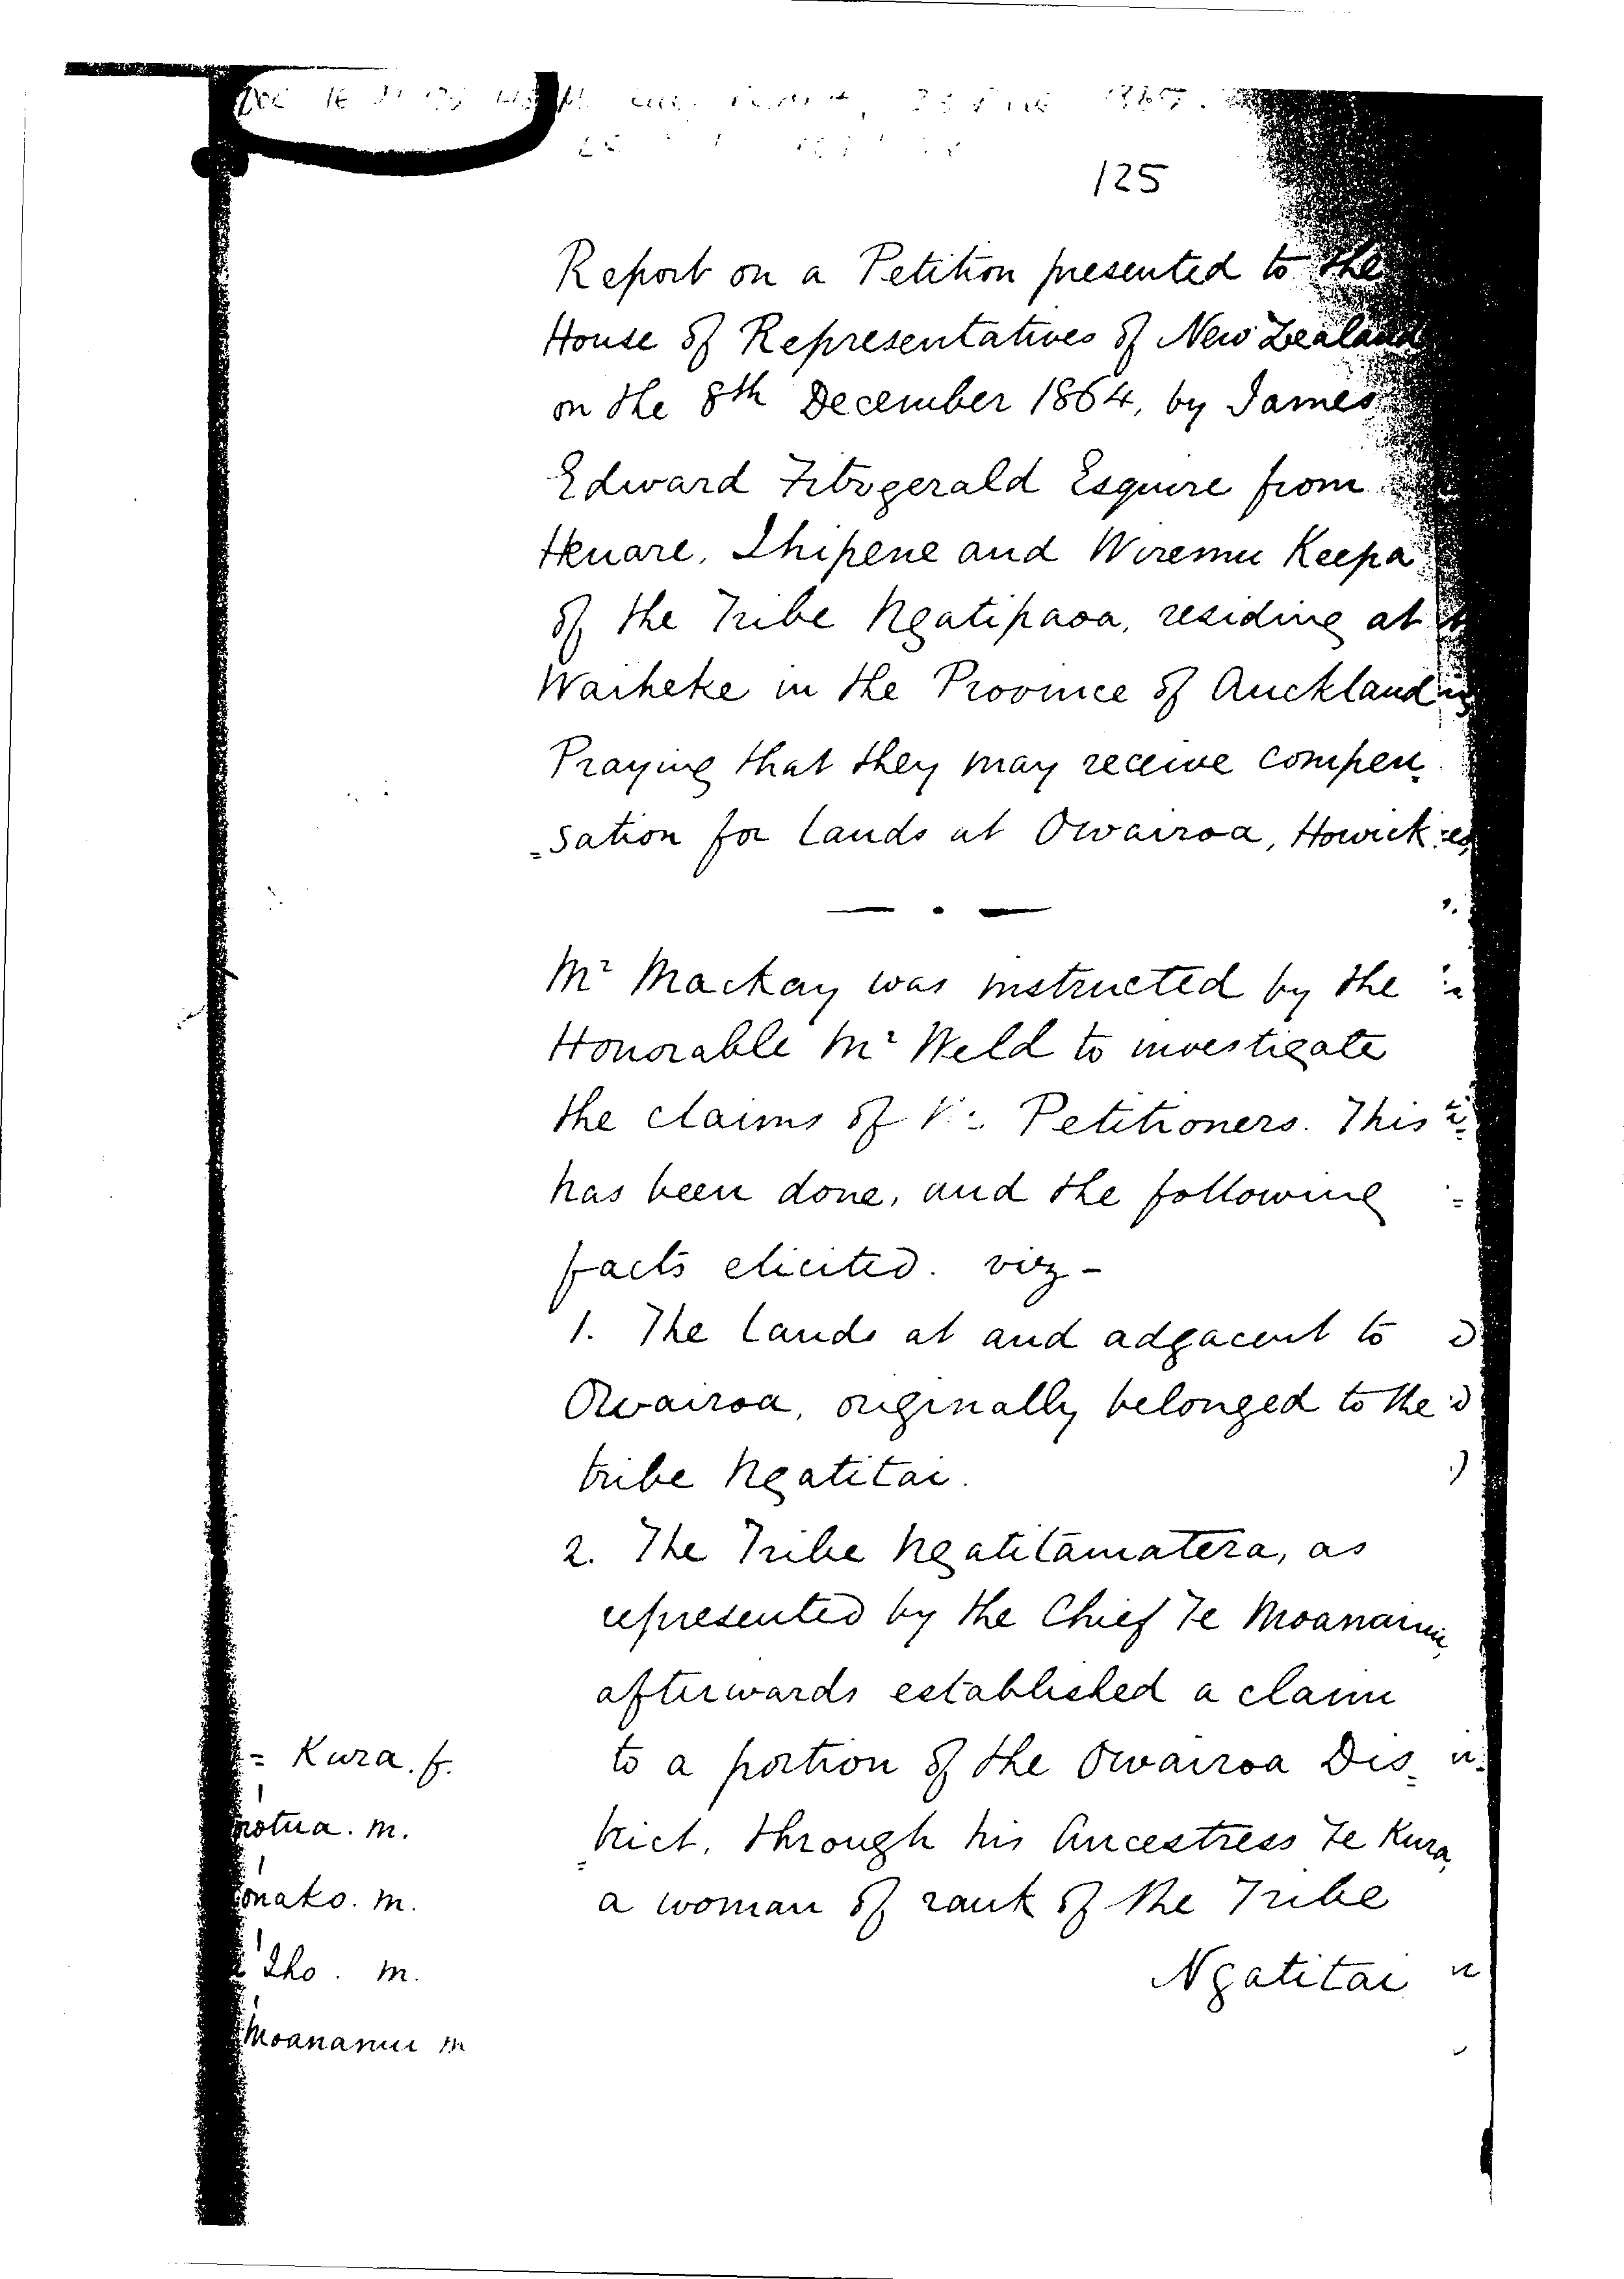 125
Report on a Petition presented to the
House of Representatives of New Zealand
on the 8th December 1864, by James
Edward Fitzgerald Esquire from
Henare, Ihipene and Wiremu Keepa
of the Tribe Ngatipaoa, residing at
Waiheke in the Province of Auckland
Praying that they may receive compen
=sation for lands at Owairoa, Howick
Mr Mackay was instructed by the
Honorable Mr Weld to investigate
the claims of Petitioners. This
has been done, and the following
facts elicited. viz -
1. The lands at and adgacent to
Owairoa, originally belonged to the
tribe Ngatitai.
2. The Tribe Ngatitamatera, as
represented by the Chief Te Moananui,
afterwards established a claim
to a portion of the Owairoa Dis=
=trict, through his Ancestress Te Kura,
a woman of rank of the Tribe
Ngatitai
= Kura. f.
otua. m.
onako. m.
Iho. m.
Moananui m